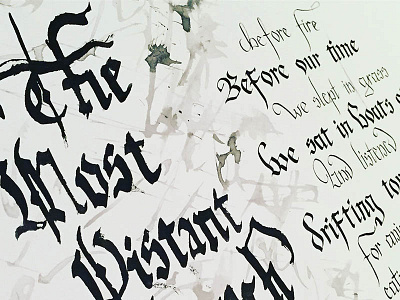 The
Most
Distant
before fire
Before our time
We slept in grass
We sat in boats
And listened
drifting
For